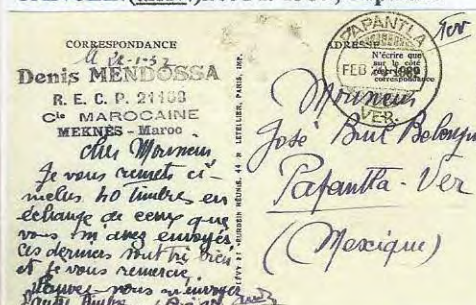 CORRESPONDANCE
le 2-1-32
Denis MENDOSSA
R. E. C. P. 21168
Cie MAROCAINE
MEKNÈS - Maroc
cher Monsieur
Je vous remets ci-
inclus 40 timbres en
échange de ceux que
vous m'avez envoyés
ces derniers sont très bien
et je vous remercie.
Pouvez-vous m'envoyer
LÉVY ET NEURDEIN RÉUNIS, 44, R. LETELLIER, PARIS, IMP.
ADRESSE
N'écrire que
sur le côté
correspondance
PAPANTLA
FEB
VER.
Monsieur
José
Papantla - Ver
(Mexique)